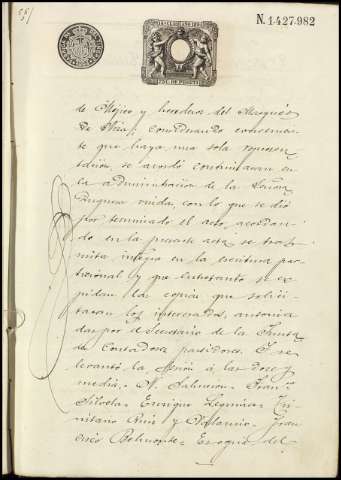 N. 1.427.982
de Méjico y herederos del Marqués
de Ariza; considerando convenien-
te que haya una sola represen-
tación, se acordó continuaran en
la administración de la Señora
Duquesa viuda, con lo que se dió
por terminado el acto, acordan-
do en la presente acta se trans-
mita íntegro en la escritura par-
ticional y que entretanto se ex-
pidan las copias que solici-
taran los interesados, autoriza-
das por el Secretario de la Junta
de Contadores partidores. Y se
levantó la sesión á las doce y
media. N. Salmerón = Franco
Silvela = Enrique = Tri-
nitario Ruiz y Valarino = Fran-
cisco Belmonte = Eloy del